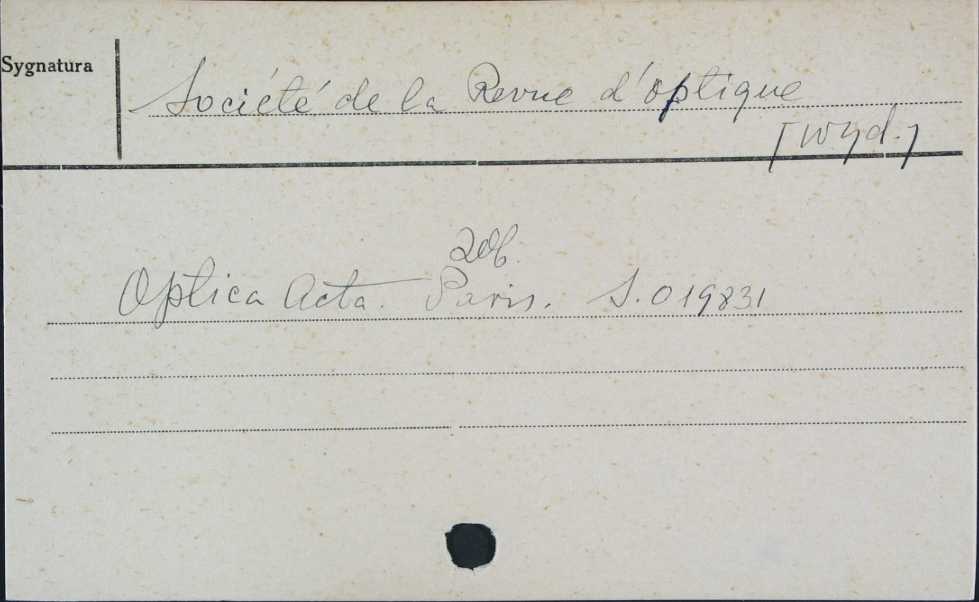 Sygnatura
Société de la Revue d'optique
[wyd.]
Zob.
Optica Acta. Paris. S.019831